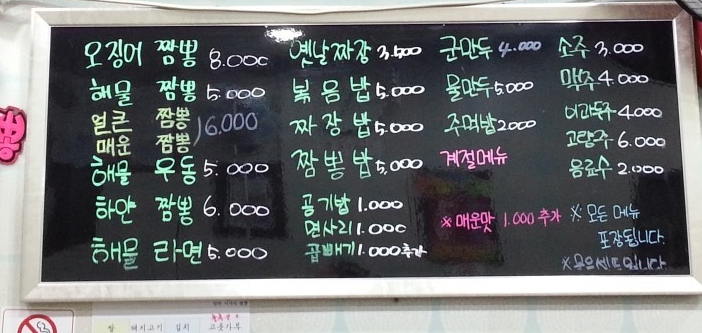 오징어 짬뽕 8.000
해물 짬뽕 5.000
얼큰 짬뽕
매운 짬뽕
)6.000
해물 우동 5.000
하얀 짬뽕 6.000
해물 라면 5.000
옛날짜장 3.500
볶음밥 5.000
짜장밥 5.000
짬뽕밥 5.000
공기밥 1.000
면사리 1.000
곱빼기 1.000추가
군만두 4.000
물만두 5.000
주먹밥 2000
계절메뉴
※ 매운맛 1.000 추가
소주 3.000
맥주 4.000
이과두주 4.000
고량주 6.000
음료수 2.000
※ 모든 메뉴
포장됩니다.
쌀 돼지고기 김치 고춧가루